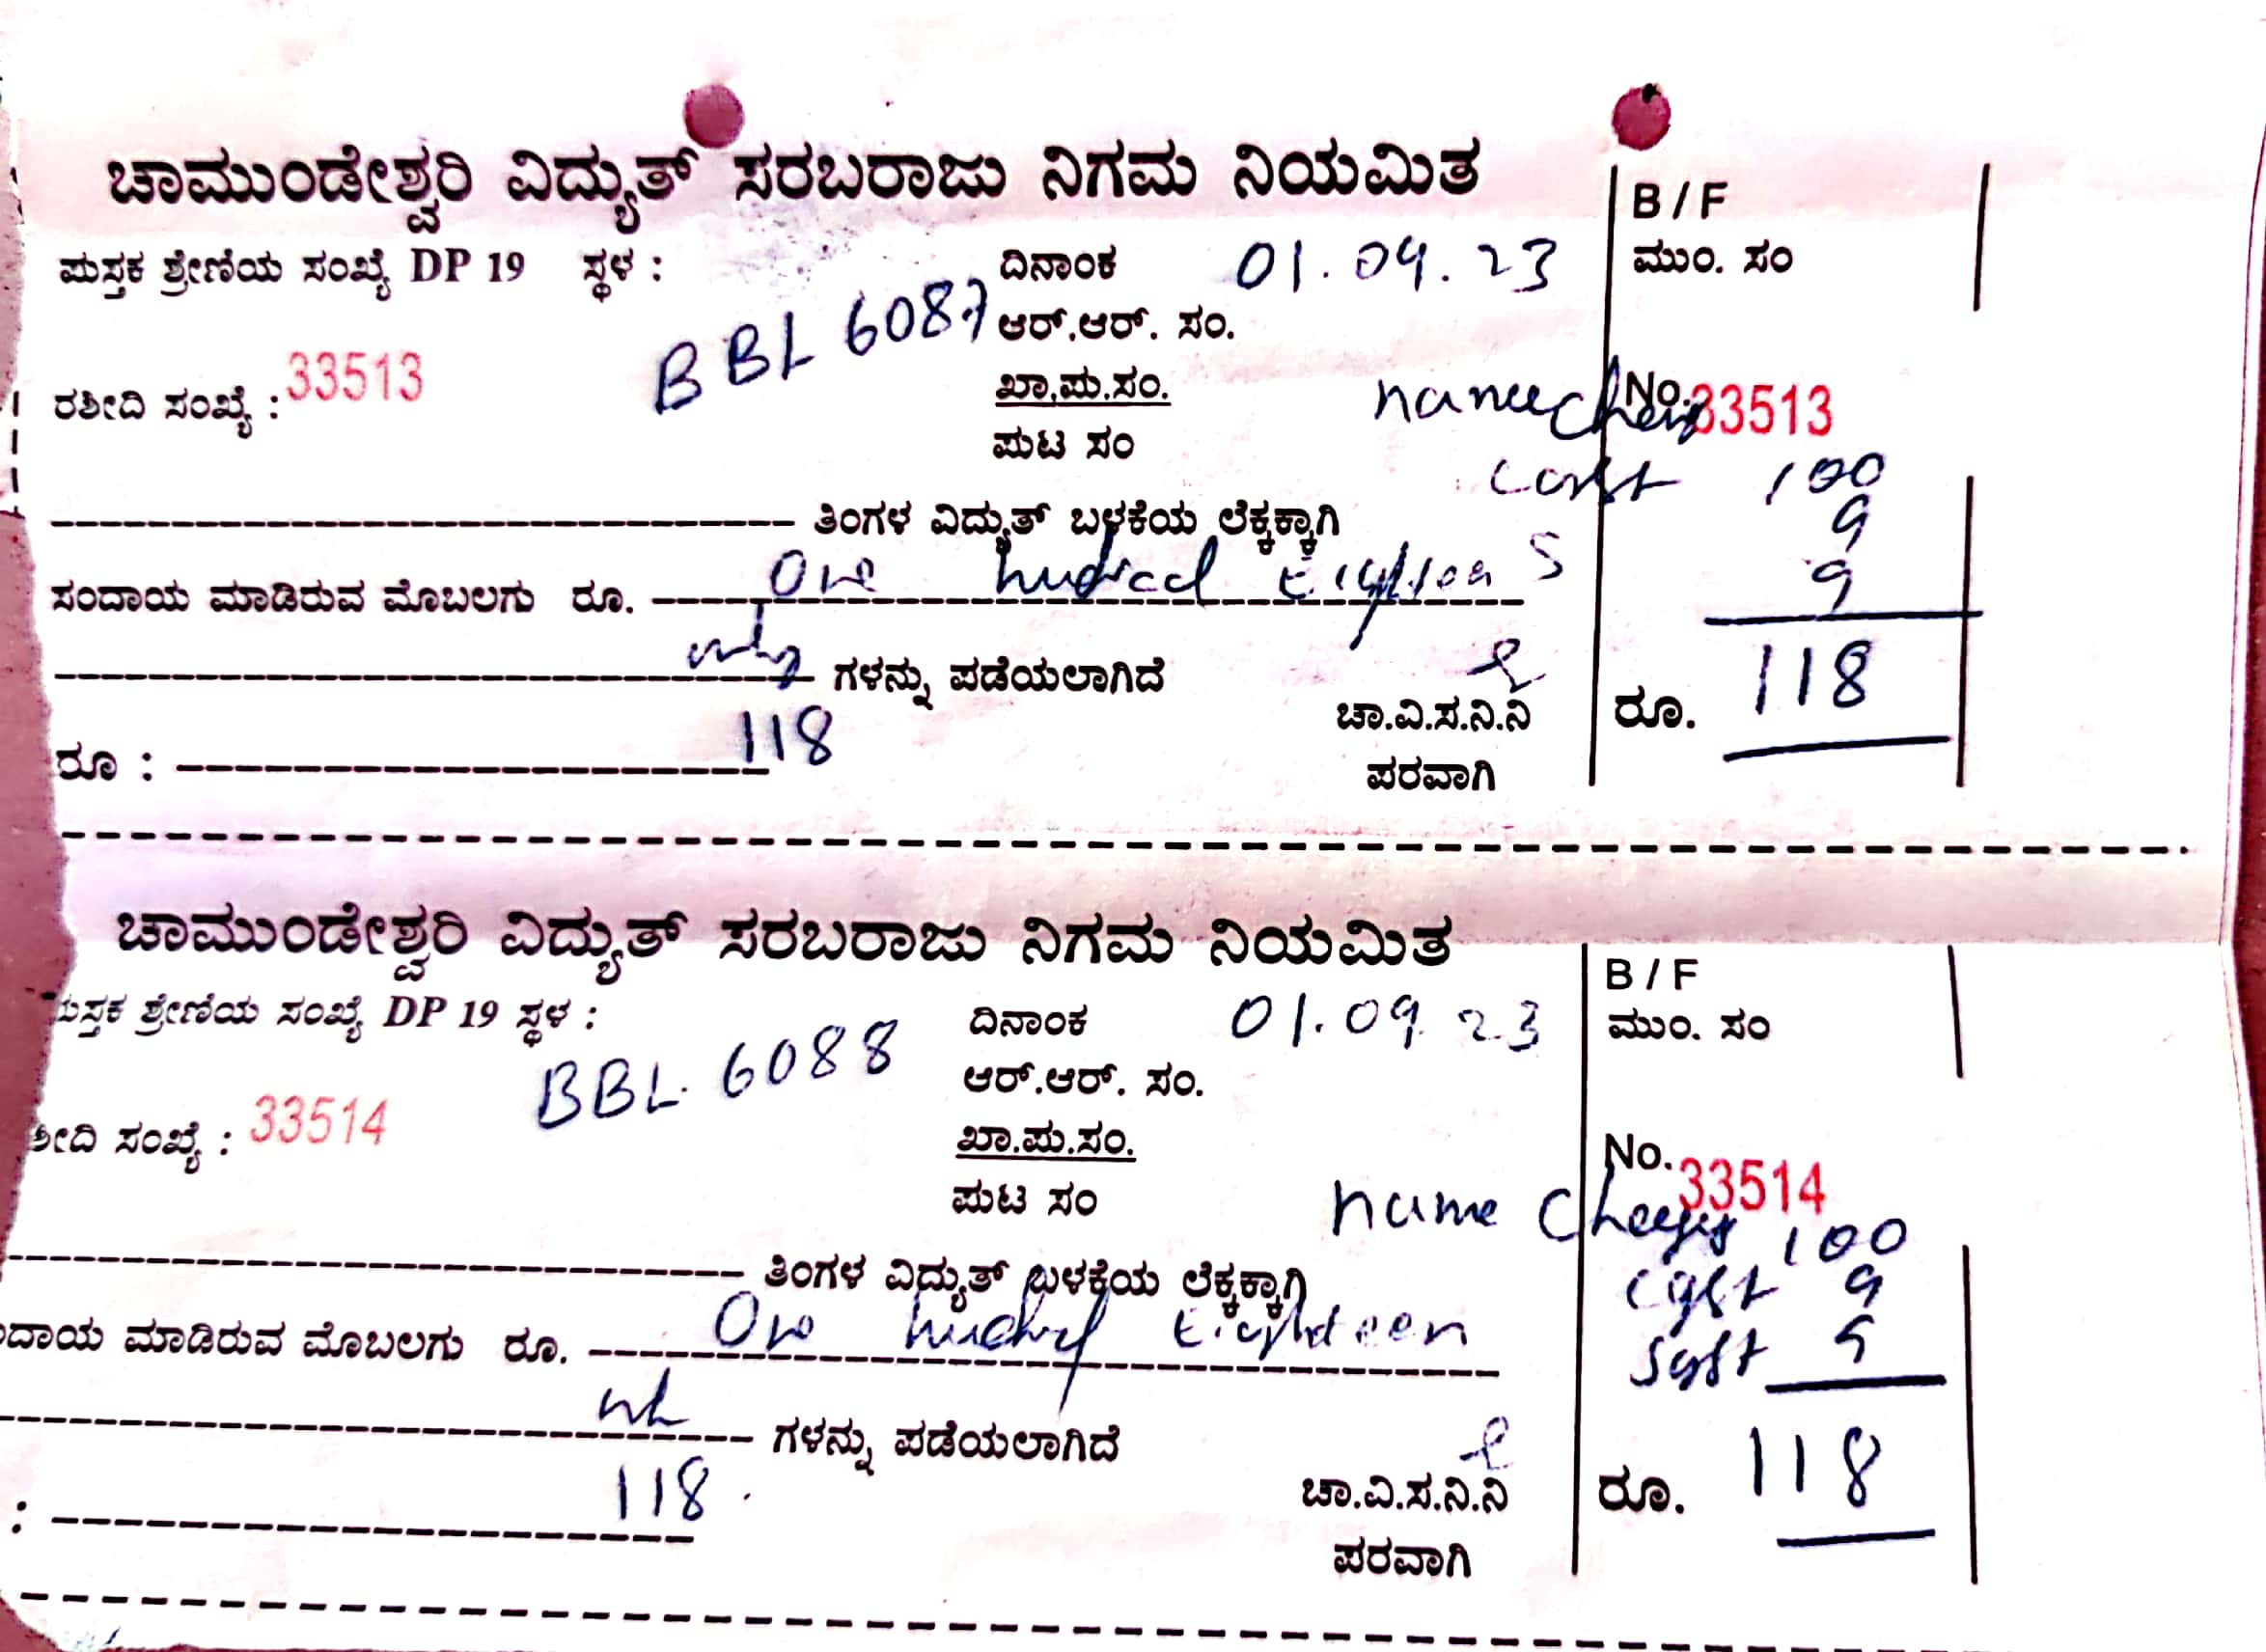 ಚಾಮುಂಡೇಶ್ವರಿ ವಿದ್ಯುತ್ ಸರಬರಾಜು ನಿಗಮ ನಿಯಮಿತ
B / F
ಪುಸ್ತಕ ಶ್ರೇಣಿಯ ಸಂಖ್ಯೆ DP 19 ಸ್ಥಳ : ದಿನಾಂಕ 01.09.23 ಮುಂ. ಸಂ
BBL 6087 ಆರ್.ಆರ್. ಸಂ.
ರಶೀದಿ ಸಂಖ್ಯೆ : 33513 ಖಾ.ಪು.ಸಂ. No. 33513
ಪುಟ ಸಂ
100
ತಿಂಗಳ ವಿದ್ಯುತ್ ಬಳಕೆಯ ಲೆಕ್ಕಕ್ಕಾಗಿ 9
ಸಂದಾಯ ಮಾಡಿರುವ ಮೊಬಲಗು ರೂ. One hundred Eighteen 9
ಗಳನ್ನು ಪಡೆಯಲಾಗಿದೆ
ಚಾ.ವಿ.ಸ.ನಿ.ನಿ ರೂ. 118
ರೂ : 118 ಪರವಾಗಿ
ಚಾಮುಂಡೇಶ್ವರಿ ವಿದ್ಯುತ್ ಸರಬರಾಜು ನಿಗಮ ನಿಯಮಿತ
B / F
ಪುಸ್ತಕ ಶ್ರೇಣಿಯ ಸಂಖ್ಯೆ DP 19 ಸ್ಥಳ : ದಿನಾಂಕ 01.09.23 ಮುಂ. ಸಂ
BBL 6088 ಆರ್.ಆರ್. ಸಂ.
ಶೀದಿ ಸಂಖ್ಯೆ : 33514 ಖಾ.ಪು.ಸಂ. No. 33514
ಪುಟ ಸಂ name
100
ತಿಂಗಳ ವಿದ್ಯುತ್ ಬಳಕೆಯ ಲೆಕ್ಕಕ್ಕಾಗಿ cgst 9
ದಾಯ ಮಾಡಿರುವ ಮೊಬಲಗು ರೂ. One hundred Eighteen sgst 9
ಗಳನ್ನು ಪಡೆಯಲಾಗಿದೆ
ಚಾ.ವಿ.ಸ.ನಿ.ನಿ ರೂ. 118
: 118
ಪರವಾಗಿ